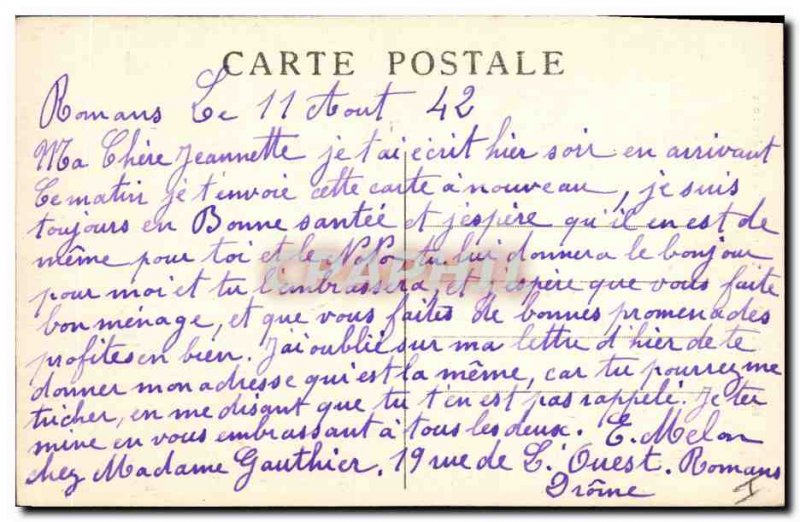 CARTE POSTALE
Romans Le 11 Aout 42
Ma Chère Jeannette je t'ai écrit hier soir en arrivant
Ce matin je t'envoie cette carte à nouveau, je suis
toujours en Bonne santée et j'espère qu'il en est de
même pour toi et le tu lui donnera le bonjour
pour moi et tu l'embrassera, et j'espère que vous faite
bon ménage, et que vous faites de bonnes promenades
profites en bien. J'ai oublié sur ma lettre d'hier de te
donner mon adresse qui est la même, car tu pourrez me
tricher, en me disant que tu t'en est pas rappelé. Je ter
mine en vous embrassant à tous les deux. E. Melon
chez Madame Gauthier. 19 rue de L'Ouest. Romans
Drôme